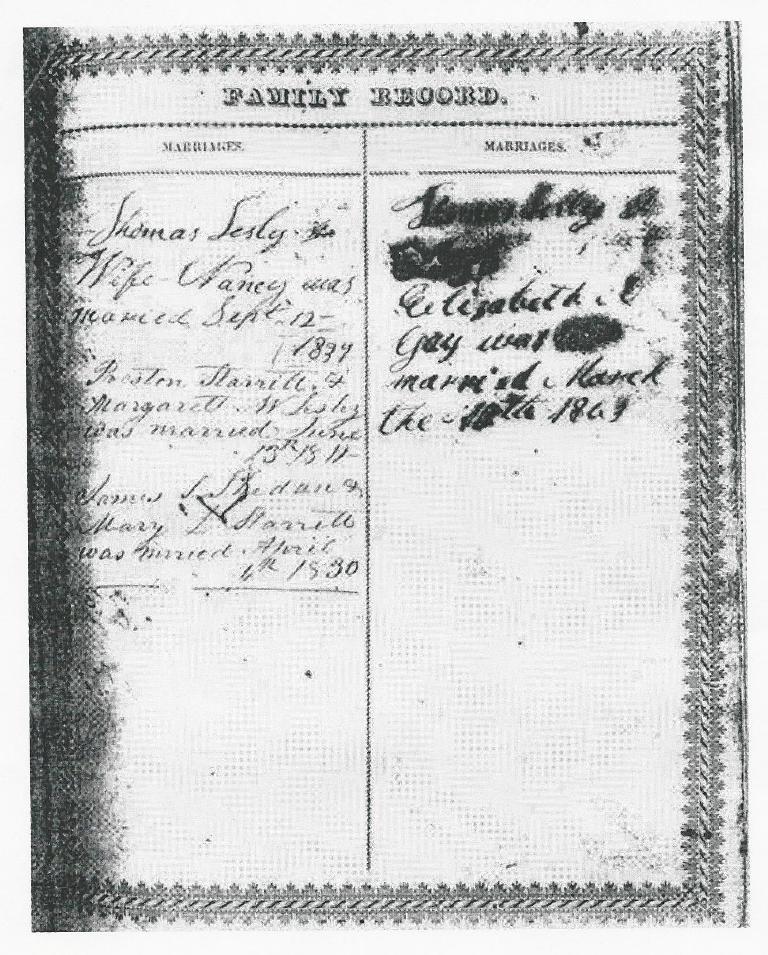 FAMILY RECORD.
MARRIAGES.
Thomas Lesly &
Wife Nancy was
married Sept 12
Preston Starritt &
Margarett W Lesly
was married June
13th
James S &
Mary L Starritt
was April
1830
MARRIAGES.
Elizabeth A
Gay was
married March
the 1863